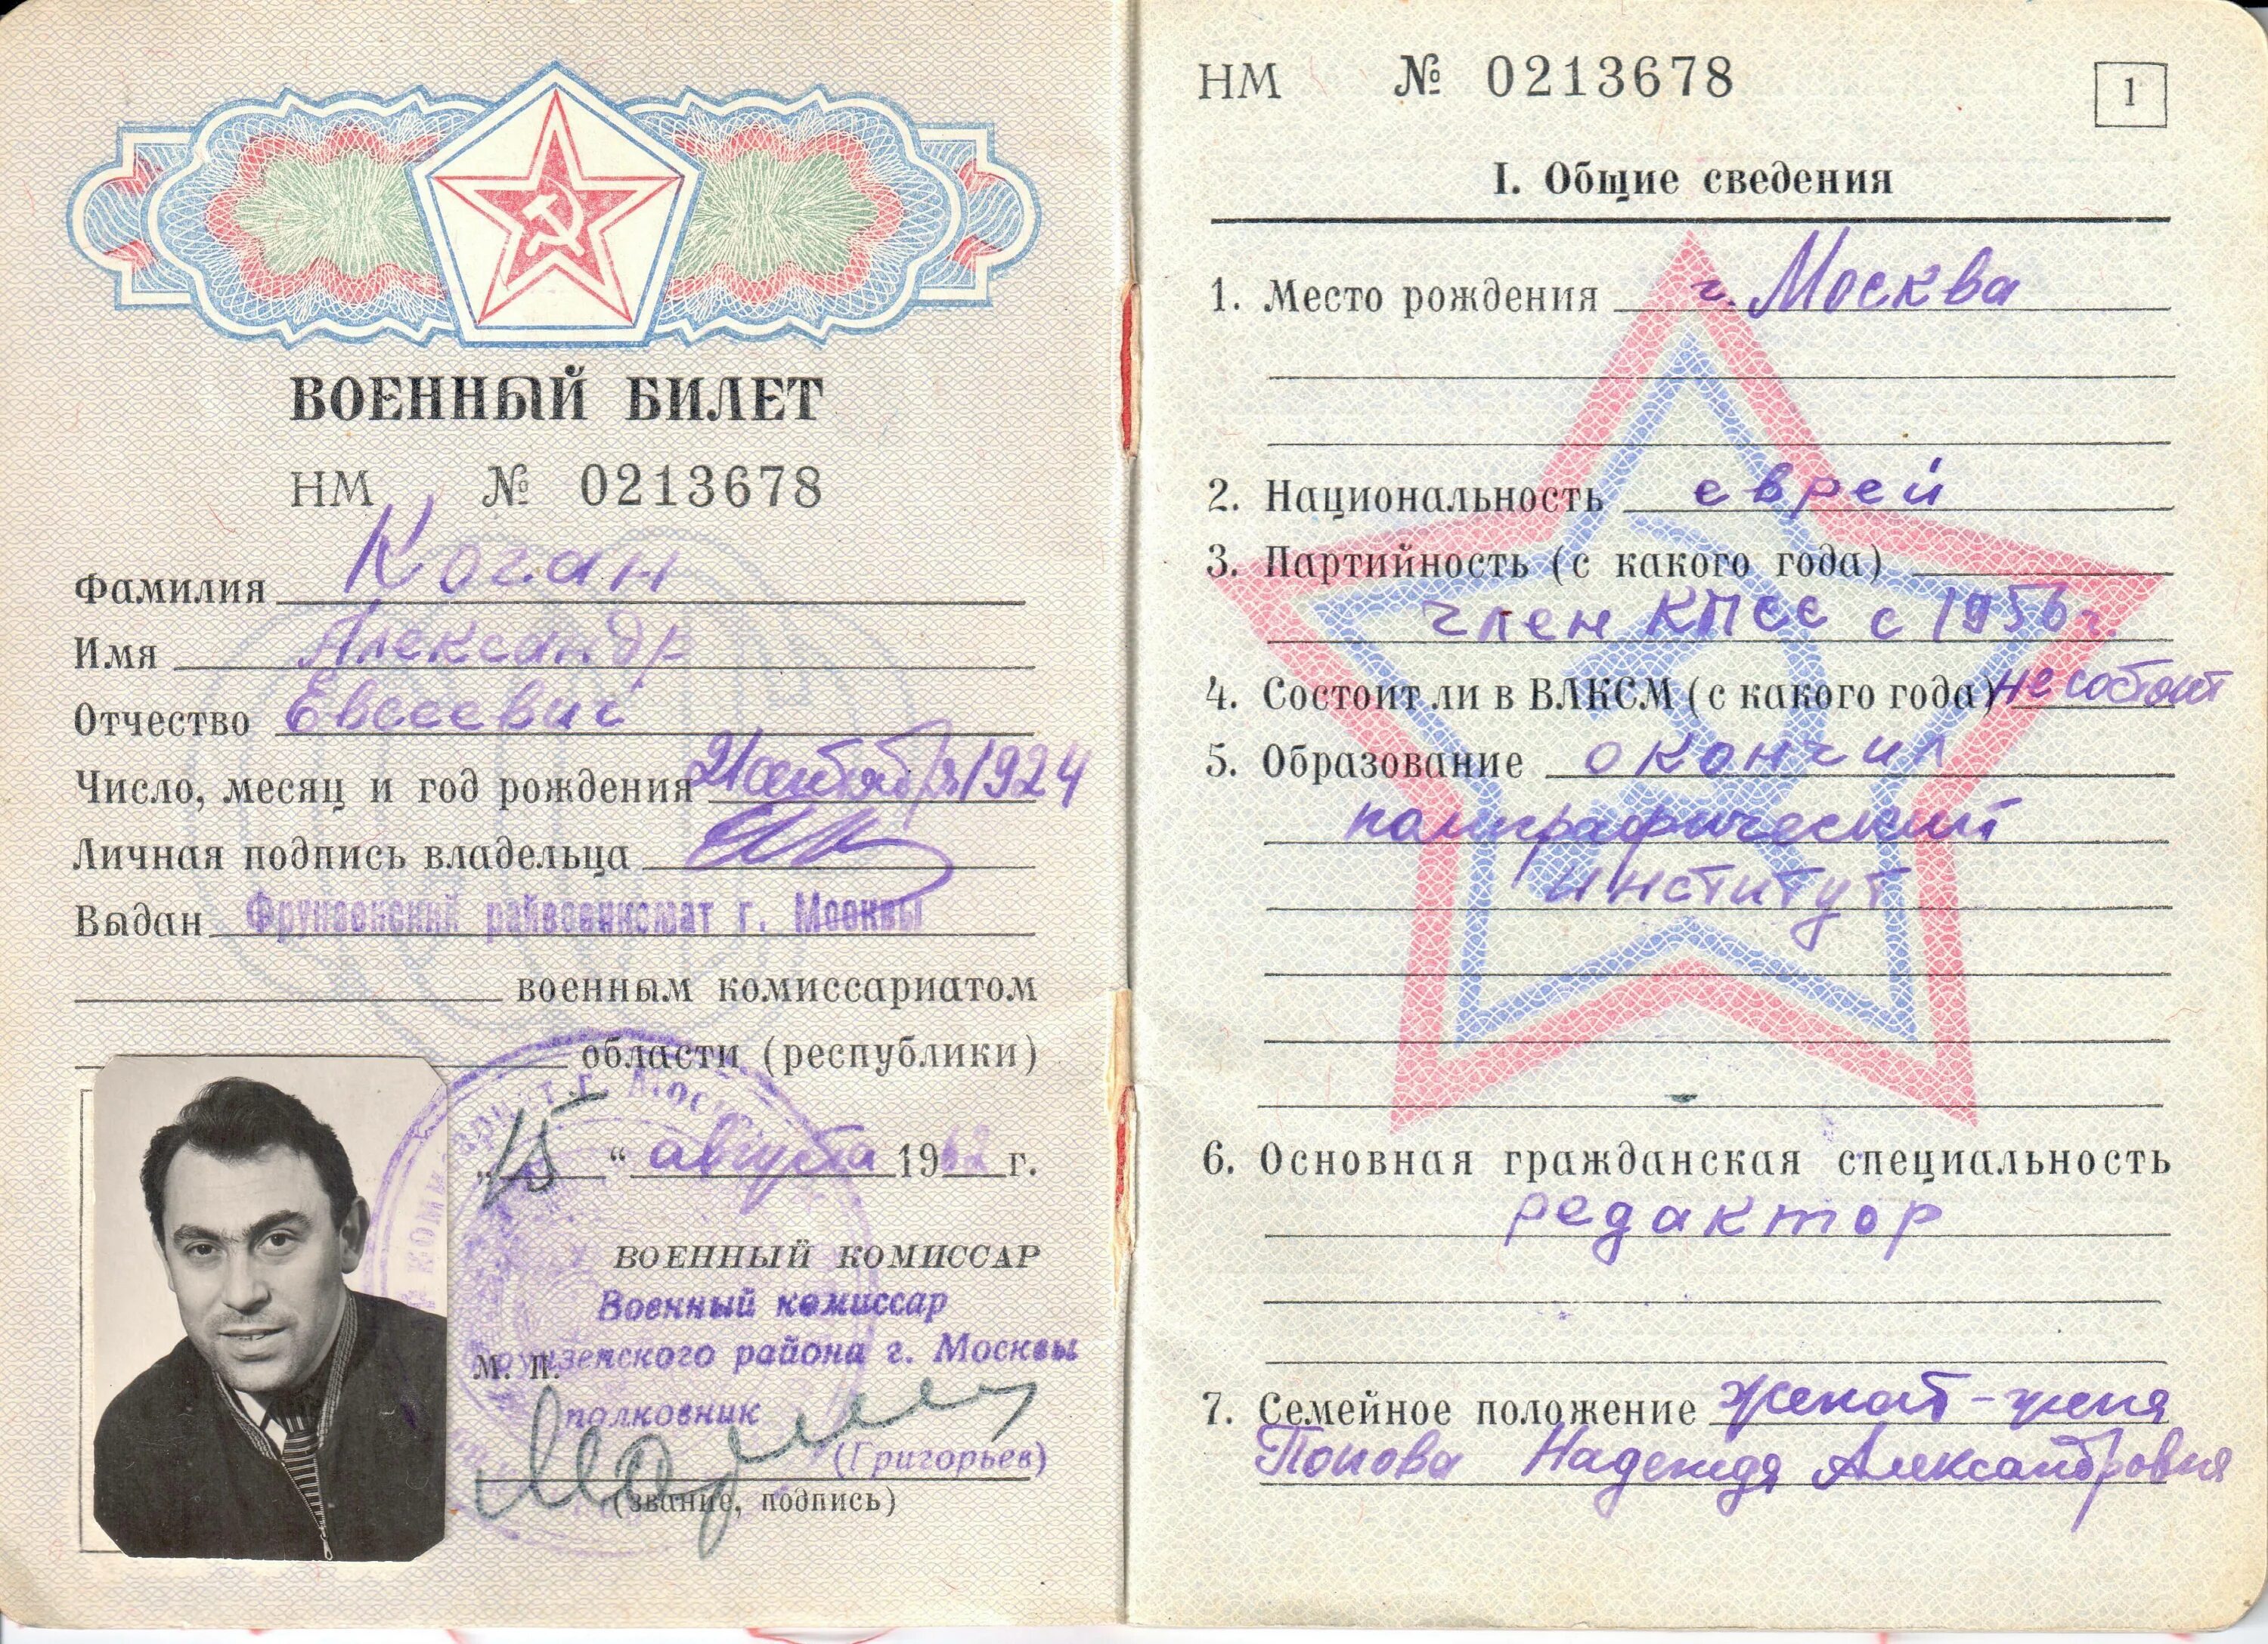 ВОЕННЫЙ БИЛЕТ
НМ № 0213678
Фамилия Коган
Имя Александр
Отчество Евсеевич
Число, месяц и год рождения 21 октября 1924
Личная подпись владельца
Выдан Фрунзенский райвоенкомат г. Москвы
военным комиссариатом
области (республики)
„15“ августа 1962 г.
ВОЕННЫЙ КОМИССАР
Военный комиссар
Фрунзенского района г. Москвы
М. П.
полковник
(Григорьев)
(звание, подпись)
НМ № 0213678
1
I. Общие сведения
1. Место рождения г. Москва
2. Национальность еврей
3. Партийность (с какого года)
член КПСС с 1956 г.
4. Состоит ли в ВЛКСМ (с какого года) не состоит
5. Образование окончил
полиграфический
институт
6. Основная гражданская специальность
редактор
7. Семейное положение женат - жена
Попова Надежда Александровна